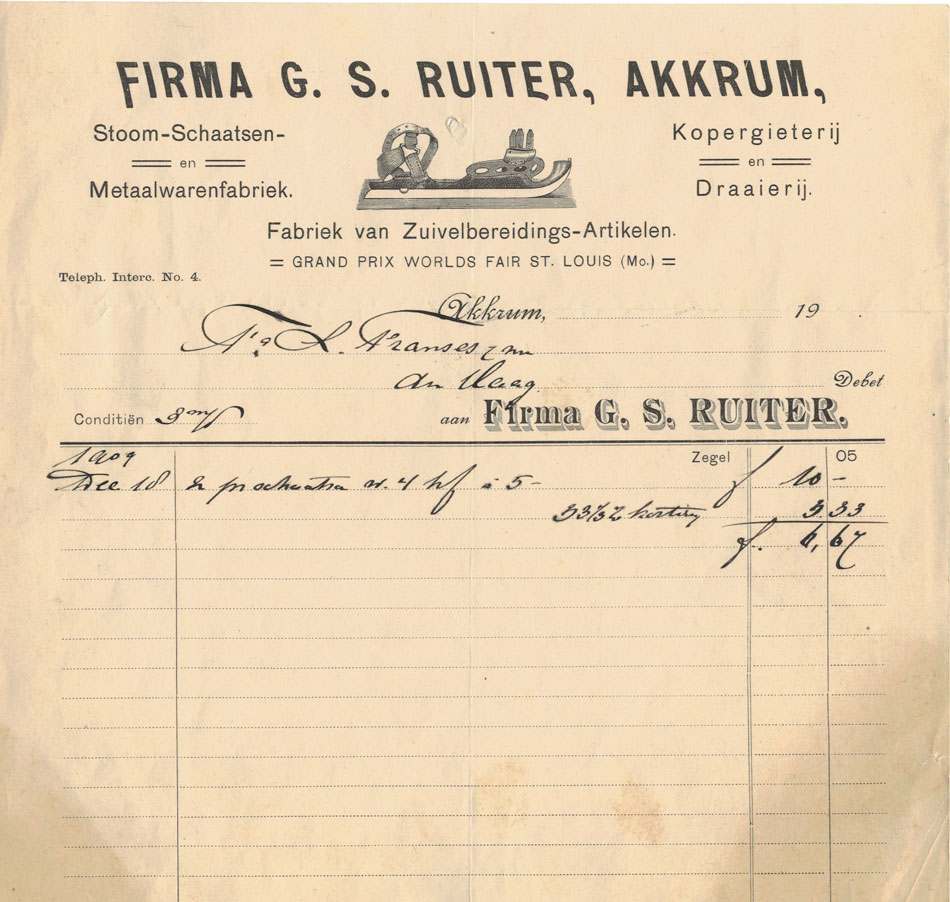 FIRMA G. S. RUITER, AKKRUM,
Stoom-Schaatsen-
en
Metaalwarenfabriek.
Kopergieterij
en
Draaierij.
Fabriek van Zuivelbereidings-Artikelen.
= GRAND PRIX WORLDS FAIR ST. LOUIS (Mo.) =
Teleph. Interc. No. 4.
Akkrum, 19
Franses
Haag Debet
Conditiën 3 aan Firma G. S. RUITER.
1909 Zegel 05
Dec 18 2 pr schaatsen n. 4 hf à 5- f 10 -
33 1/3 % korting 3.33
f. 6,67